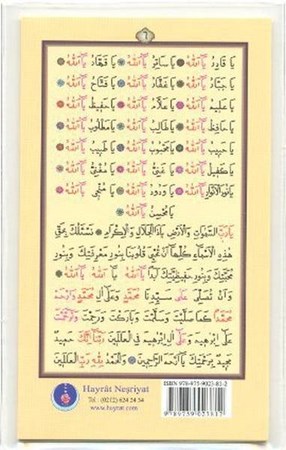 ٦
يَا قَادِرُ يَا اَللّٰهُ يَا سَاتِرُ يَا اَللّٰهُ يَا قَهَّارُ يَا اَللّٰهُ
يَا جَبَّارُ يَا اَللّٰهُ يَا غَفَّارُ يَا اَللّٰهُ يَا فَتَّاحُ يَا اَللّٰهُ
يَا عَلِيمُ يَا اَللّٰهُ يَا عَلَّامُ يَا اَللّٰهُ يَا حَفِيظُ يَا اَللّٰهُ
يَا حَافِظُ يَا اَللّٰهُ يَا طَالِبُ يَا اَللّٰهُ يَا مَطْلُوبُ يَا اَللّٰهُ
يَا حَبِيبُ يَا اَللّٰهُ يَا مَحْبُوبُ يَا اَللّٰهُ يَا طَبِيبُ يَا اَللّٰهُ
يَا كَفِيلُ يَا اَللّٰهُ يَا غَنِيُّ يَا اَللّٰهُ يَا مُغْنِي يَا اَللّٰهُ
يَا نُورَ الْاَنْوَارِ يَا اَللّٰهُ يَا وَدُودُ يَا اَللّٰهُ يَا مُنْجِي يَا اَللّٰهُ
يَا مُحْسِنُ يَا اَللّٰهُ
يَا رَبَّ السَّمٰوَاتِ وَالْاَرْضِ يَا ذَا الْجَلَالِ وَالْاِكْرَامِ نَسْئَلُكَ بِحَقِّ
هٰذِهِ الْاَسْمَاءِ كُلِّهَا اَنْ تُحْيِيَ قُلُوبَنَا بِنُورِ مَعْرِفَتِكَ وَبِنُورِ
مَحَبَّتِكَ وَبِنُورِ يَا اَللّٰهُ يَا اَللّٰهُ يَا اَللّٰهُ
وَاَنْ تُصَلِّيَ عَلٰى سَيِّدِنَا مُحَمَّدٍ وَعَلٰى اٰلِ مُحَمَّدٍ وَارْحَمْ
مُحَمَّدًا كَمَا صَلَّيْتَ وَسَلَّمْتَ وَبَارَكْتَ وَرَحِمْتَ وَتَرَحَّمْتَ
عَلٰى اِبْرٰهِيمَ وَعَلٰى اٰلِ اِبْرٰهِيمَ فِي الْعَالَمِينَ رَبَّنَا اِنَّكَ حَمِيدٌ
مَجِيدٌ بِرَحْمَتِكَ يَا اَرْحَمَ الرَّاحِمِينَ وَالْحَمْدُ لِلّٰهِ رَبِّ الْعَالَمِينَ
Hayrât Neşriyat
Tel : (0212) 624 24 34
www.hayrat.com
ISBN 978-975-9023-81-2
9789759023812